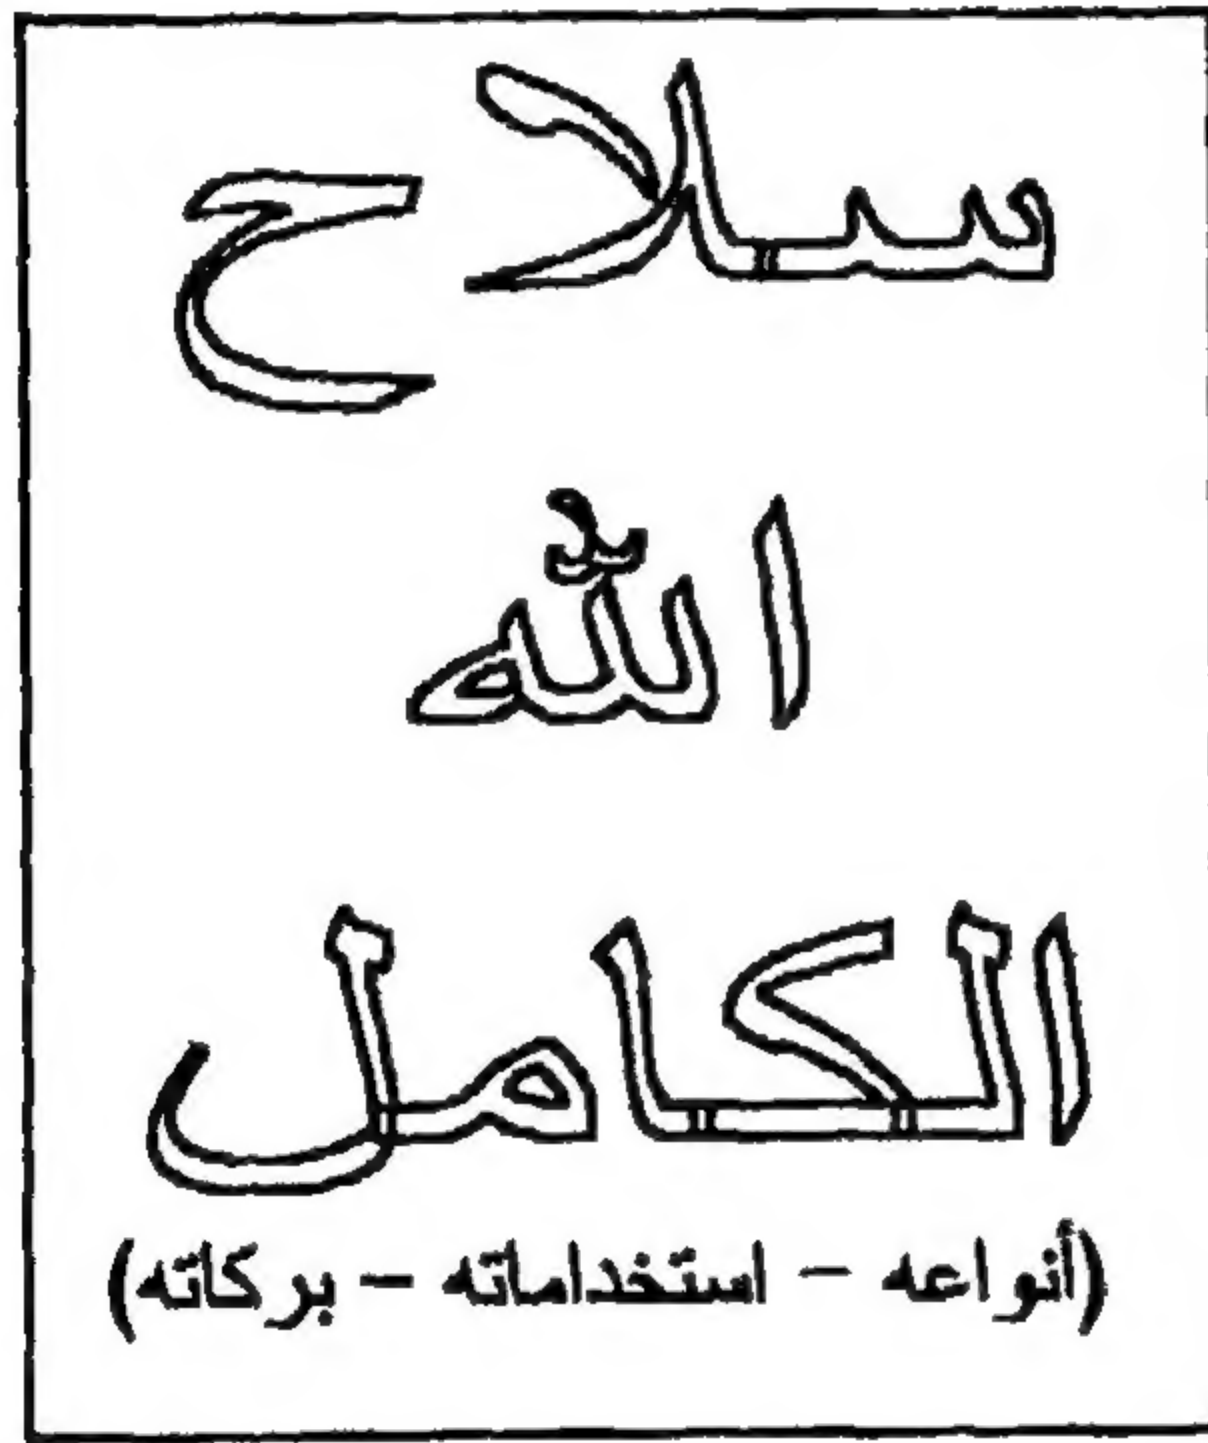 سلاح
الله
الكامل
(أنواعه - استخداماته - بركاته)